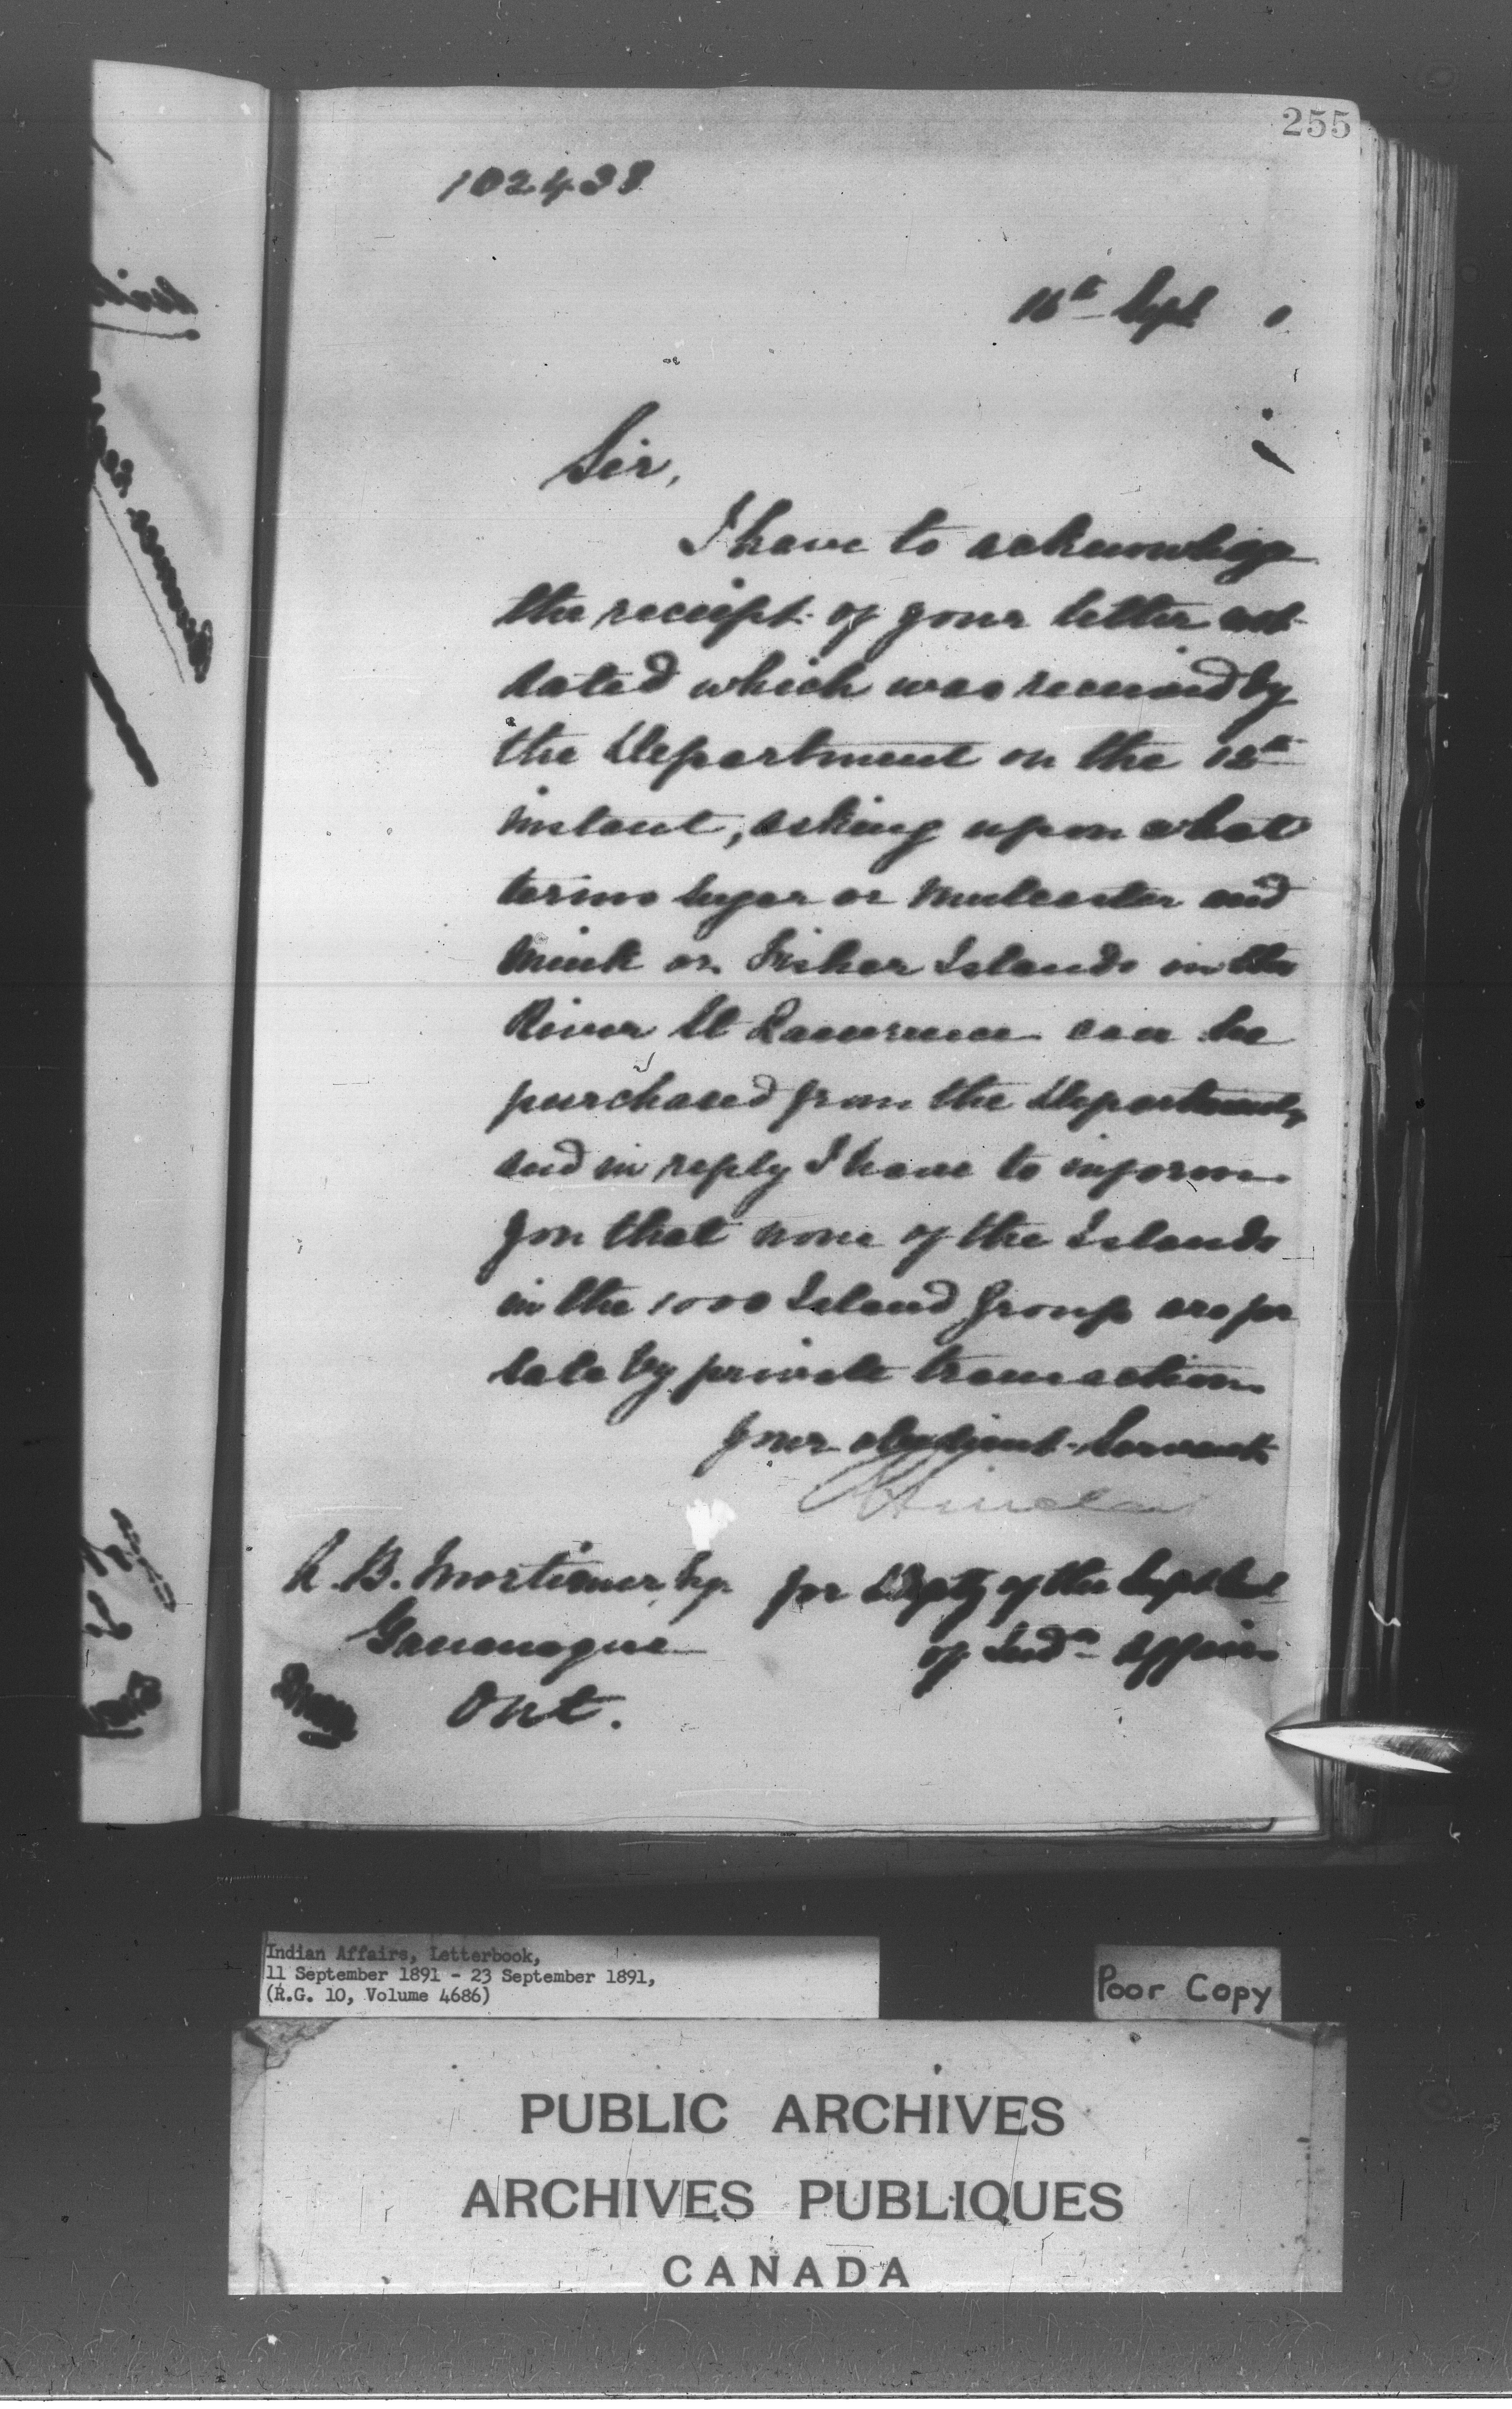 255
102438
16th Sept 1
Sir,
I have to acknowledge
the receipt of your letter not
dated which was received by
the Department on the 12th
instant, asking upon what
terms Sugar or Mulcaster and
Mink or Fisher Islands in the
River St Lawrence can be
purchased from the Department,
and in reply I have to inform
you that none of the Islands
in the 1000 Island Group are for
sale by private transaction.
Your obedient Servant
R Sinclair
A. B. Mortimer, Esq.
for Depty of the Supt Genl
Gananoque
of Indn Affairs
Ont.
Indian Affairs, Letterbook,
11 September 1891 - 23 September 1891,
(R.G. 10, Volume 4686)
Poor Copy
PUBLIC ARCHIVES
ARCHIVES PUBLIQUES
CANADA